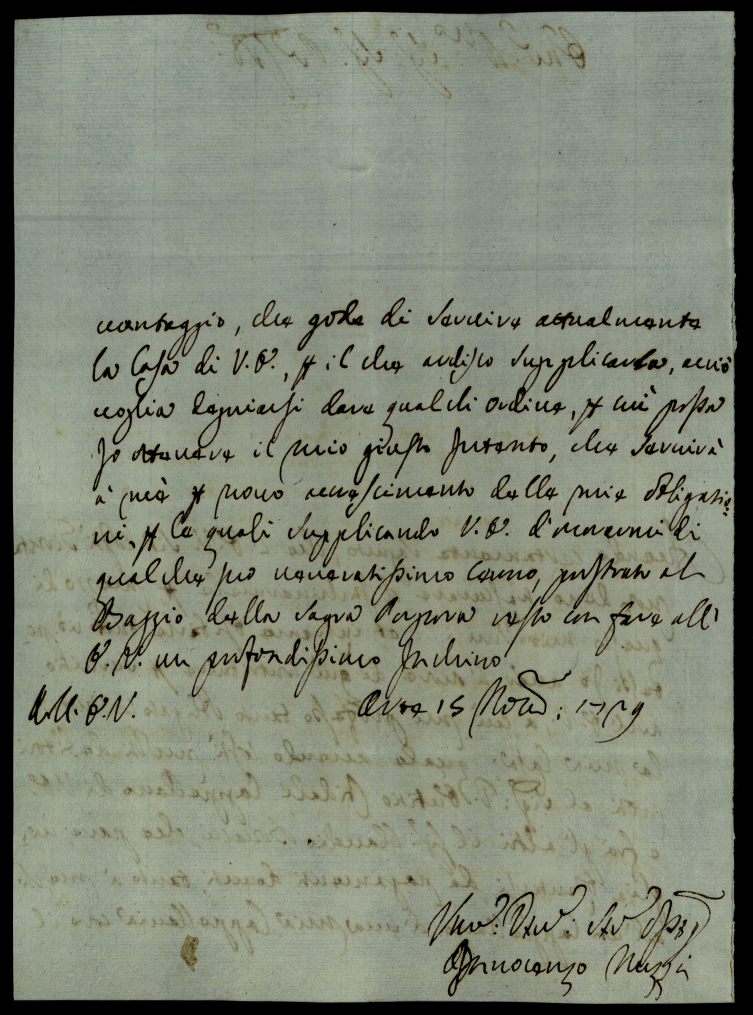 vantaggio, che gode di servire attualmente
la Casa di V. E., p il che ardisco supplicarla, acciò
voglia degniarsi dare qualch ordine, p cui possa
Io ottenere il mio giusto Intento, che servirà
à mè p novo accrescimento delle mie obligatio
ni, p le quali supplicando V. E. d'onorarmi di
qualche suo veneratissimo Cenno, prostrato al
Baggio della Sagra Porpora resto con fare all'
E. V. un profondissimo Inchino
Dell. E. V. 15 Nove: 1729
Um: Dev: Ser
Innocenzo